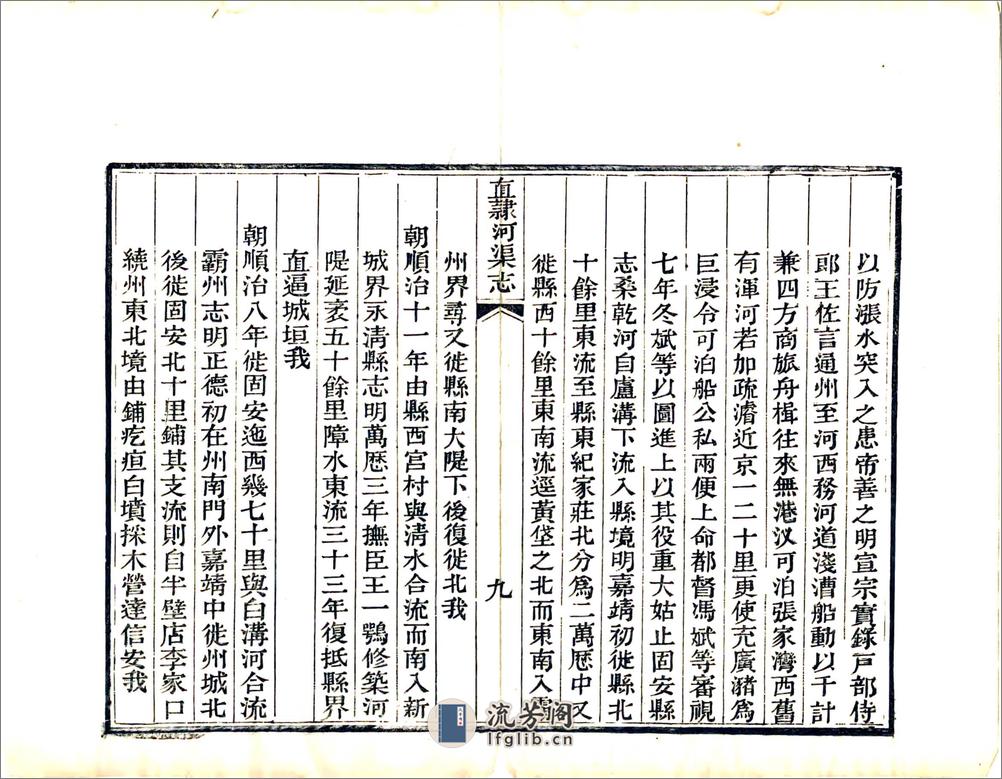 以防漲水突入之患帝善之明宣宗實錄戸部侍
郎王佐言通州至河西務河道淺漕船動以千計
兼四方商旅舟楫往來無港汊可泊張家灣西舊
有渾河若加疏濬近京一二十里更使充廣瀦爲
巨浸令可泊船公私兩便上命都督馮斌等審視
七年冬斌等以圖進上以其役重大姑止固安縣
志桑乾河自盧溝下流入縣境明嘉靖初徙縣北
十餘里東流至縣東紀家莊北分爲二萬厯中又
徙縣西十餘里東南流逕黄垡之北而東南入霸
直隸河渠志
九
州界尋又徙縣南大隄下後復徙北我
朝順治十一年由縣西宮村與清水合流而南入新
城界永清縣志明萬厯三年撫臣王一鶚修築河
隄延袤五十餘里障水東流三十三年復抵縣界
直逼城垣我
朝順治八年徙固安迤西幾七十里與白溝河合流
霸州志明正德初在州南門外嘉靖中徙州城北
後徙固安北十里鋪其支流則自半壁店李家口
繞州東北境由鋪疙疸白墳採木營達信安我
流芳阁
lfglib.cn